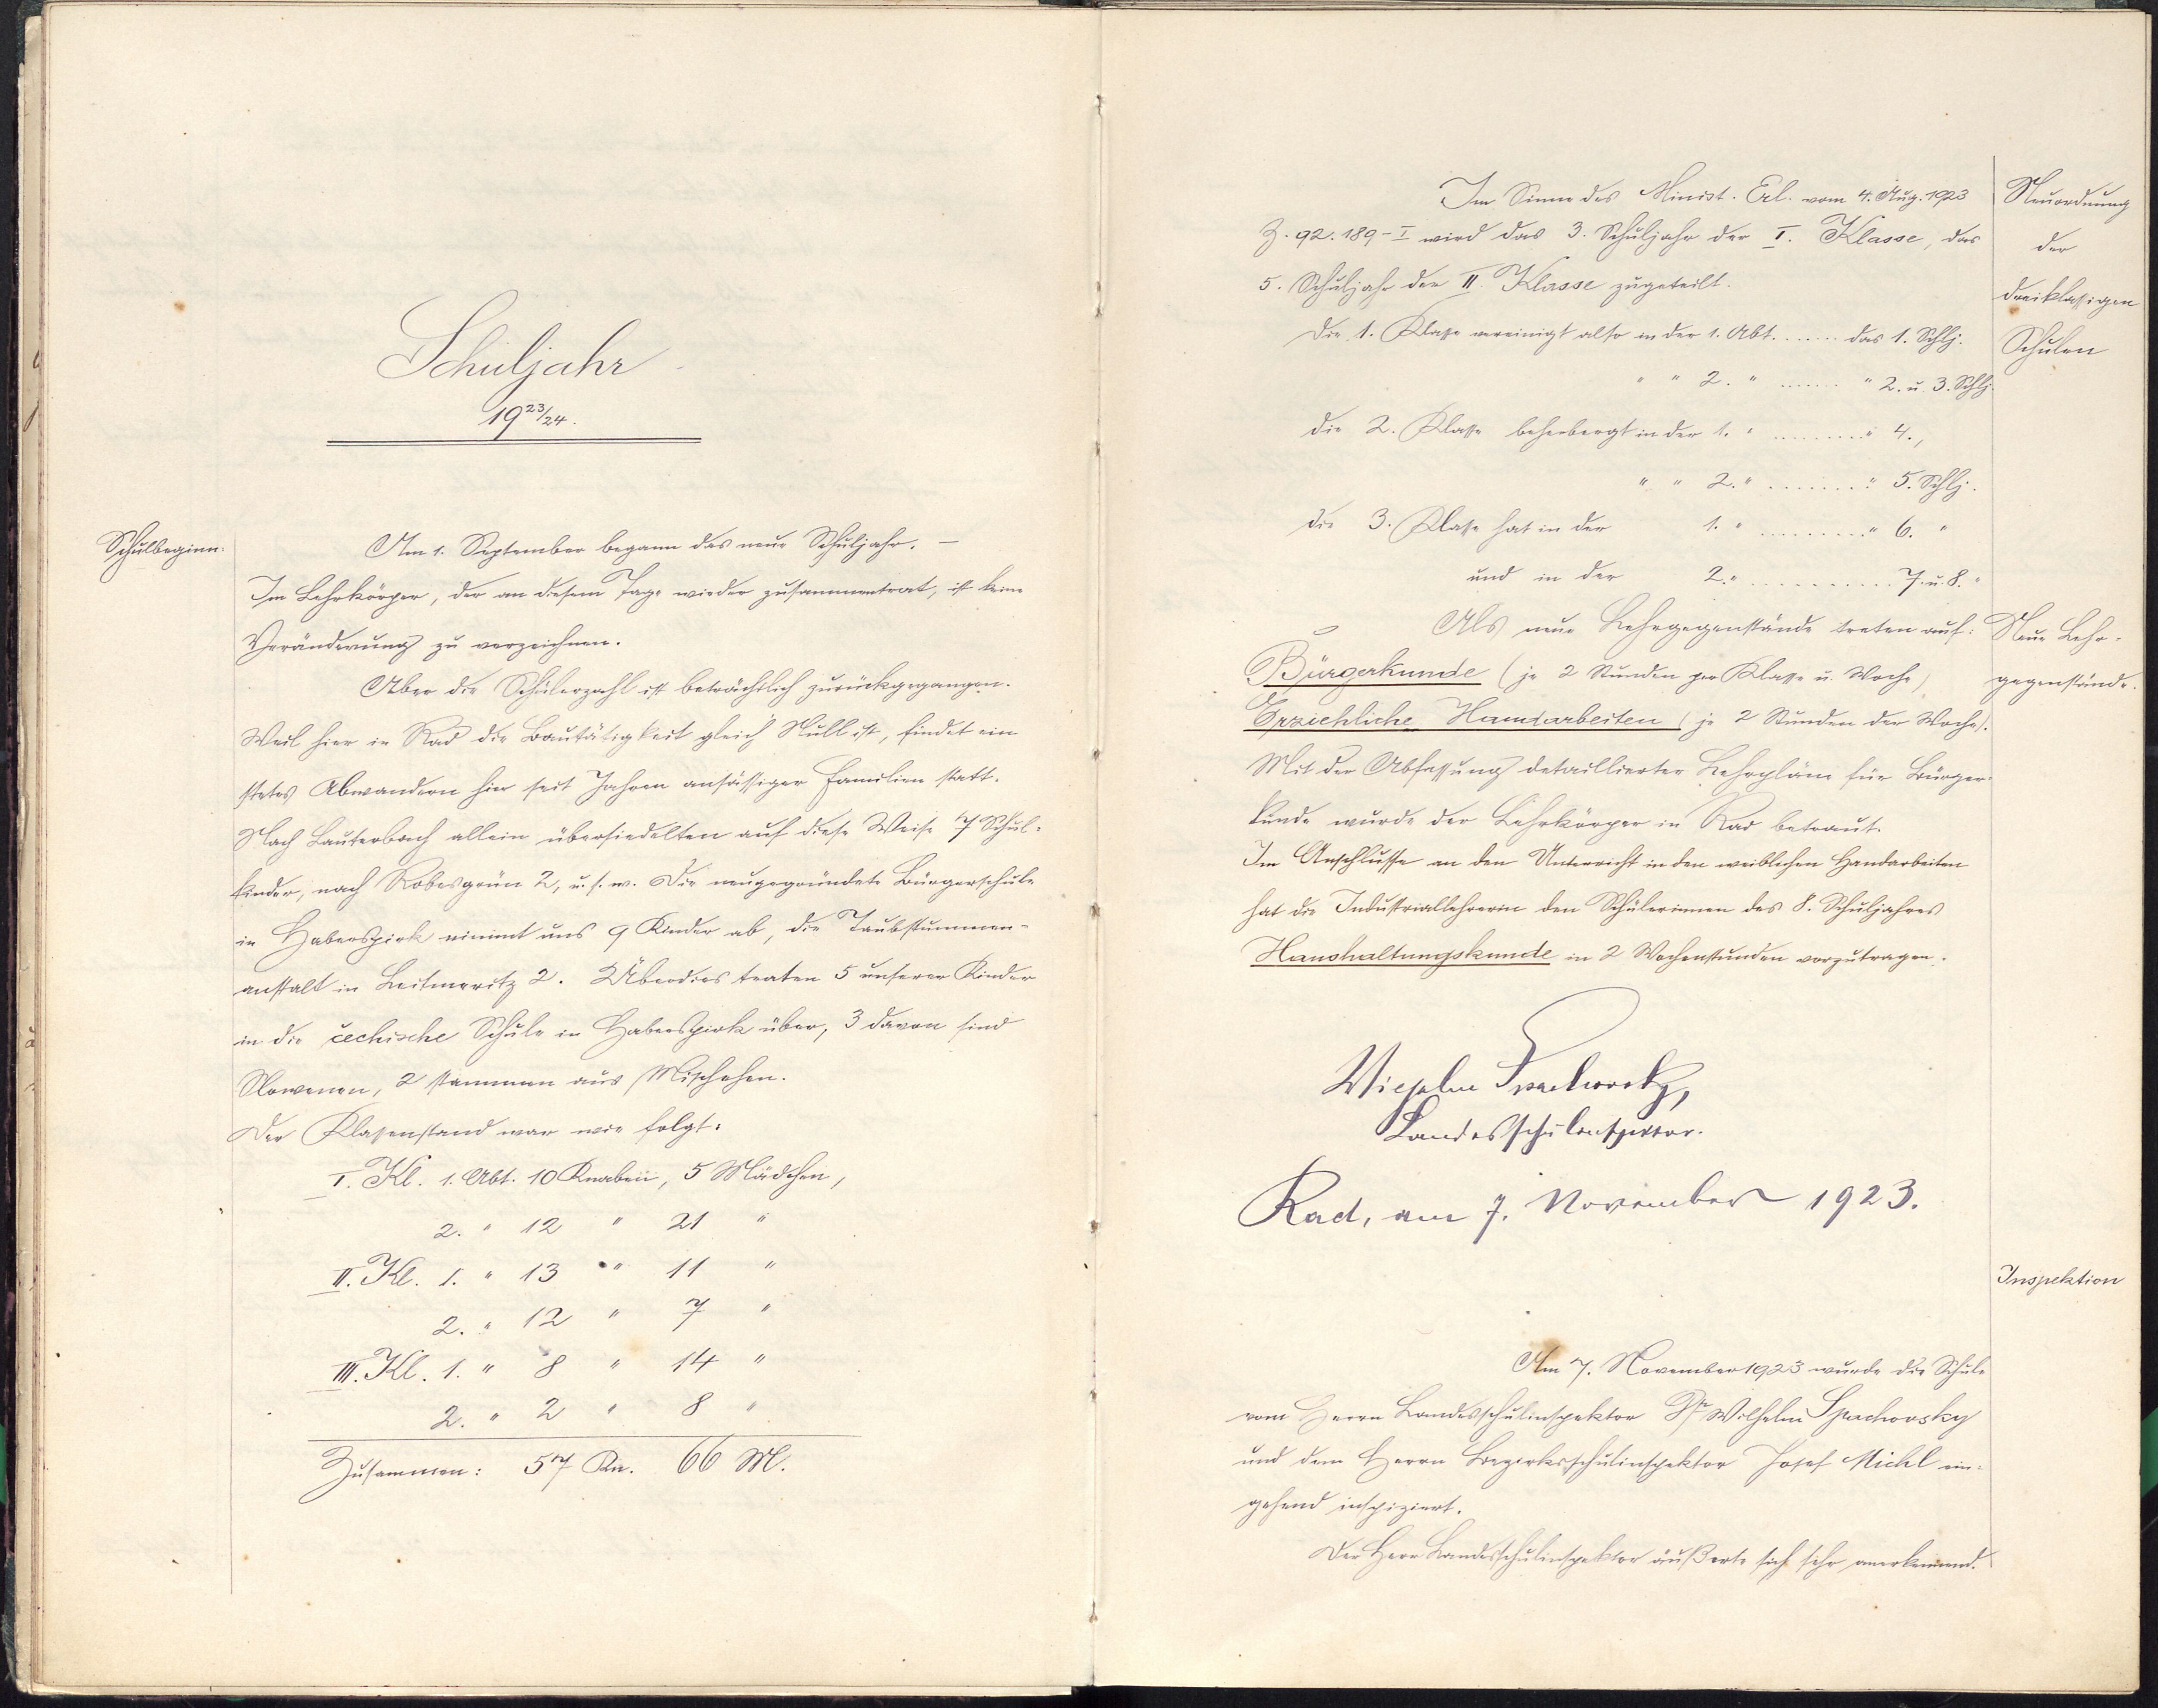 Schuljahr
19 23/24.
Schulbeginn.
Am 1. September begann das neue Schuljahr. –
Im Lehrkörper, der an diesem Tage wieder zusammentrat, ist keine
Veränderung zu verzeichnen.
Aber die Schülerzahl ist beträchtlich zurückgegangen.
Weil hier in Rad die Bautätigkeit gleich Null ist, findet ein
stetes Abwandern hier seit Jahren ansässiger Familien statt.
Nach Lauterbach allein übersiedelten auf diese Weise 7 Schul-
kinder, nach Robesgrün 2, u. s. w. Die neugegründete Bürgerschule
in Haberspirk nimmt uns 9 Kinder ab, die Taubstummen-
anstalt in Leitmeritz 2. Überdies traten 5 unserer Kinder
in die čechische Schule in Haberspirk über, 3 davon sind
Slowenen, 2 stammen aus Mischehen.
Der Klassenstand war wie folgt:
I. Kl. 1. Abt. 10 Knaben, 5 Mädchen,
2. " 12 " 21 "
II. Kl. 1. " 13 " 11 "
2. " 12 " 7 "
III. Kl. 1. " 8 " 14 "
2. " 2 " 8 "
Zusammen: 57 Kn. 66 M.
Im Sinne des Minist. Erl. vom 4. Aug. 1923
Z. 92.189-I wird das 3. Schuljahr der I. Klasse, das
5. Schuljahr der II. Klasse zugeteilt.
Neuordnung
der
dreiklassigen
Schulen
Die 1. Klasse vereinigt also in der 1. Abt. ...... das 1. Schlj.
" " 2. " ...... " 2. u. 3. Schlj.
die 2. Klasse beherbergt in der 1. " ........ " 4.,
" " 2. " ....... " 5. Schlj.
die 3. Klasse hat in der 1. " ......... " 6. "
und in der 2. " .......... 7. u. 8. "
Als neue Lehrgegenstände treten auf:
Neue Lehr-
gegenstände.
Bürgerkunde (je 2 Stunden per Klasse u. Woche)
Erziehliche Handarbeiten (je 2 Stunden der Woche).
Mit der Abfassung detaillierter Lehrpläne für Bürger-
kunde wurde der Lehrkörper in Rad betraut.
Im Anschlusse an den Unterricht in den weiblichen Handarbeiten
hat die Industriallehrerin den Schülerinnen des 8. Schuljahres
Haushaltungskunde in 2 Wochenstunden vorzutragen.
Landesschulinspektor.
Rad, am 7. November 1923.
Inspektion
Am 7. November 1923 wurde die Schule
vom Herrn Landesschulinspektor Dr Wilhelm Spachovsky
und dem Herrn Bezirksschulinspektor Josef Michl ein-
gehend inspiziert.
Der Herr Landesschulinspektor äußerte sich sehr anerkennend.